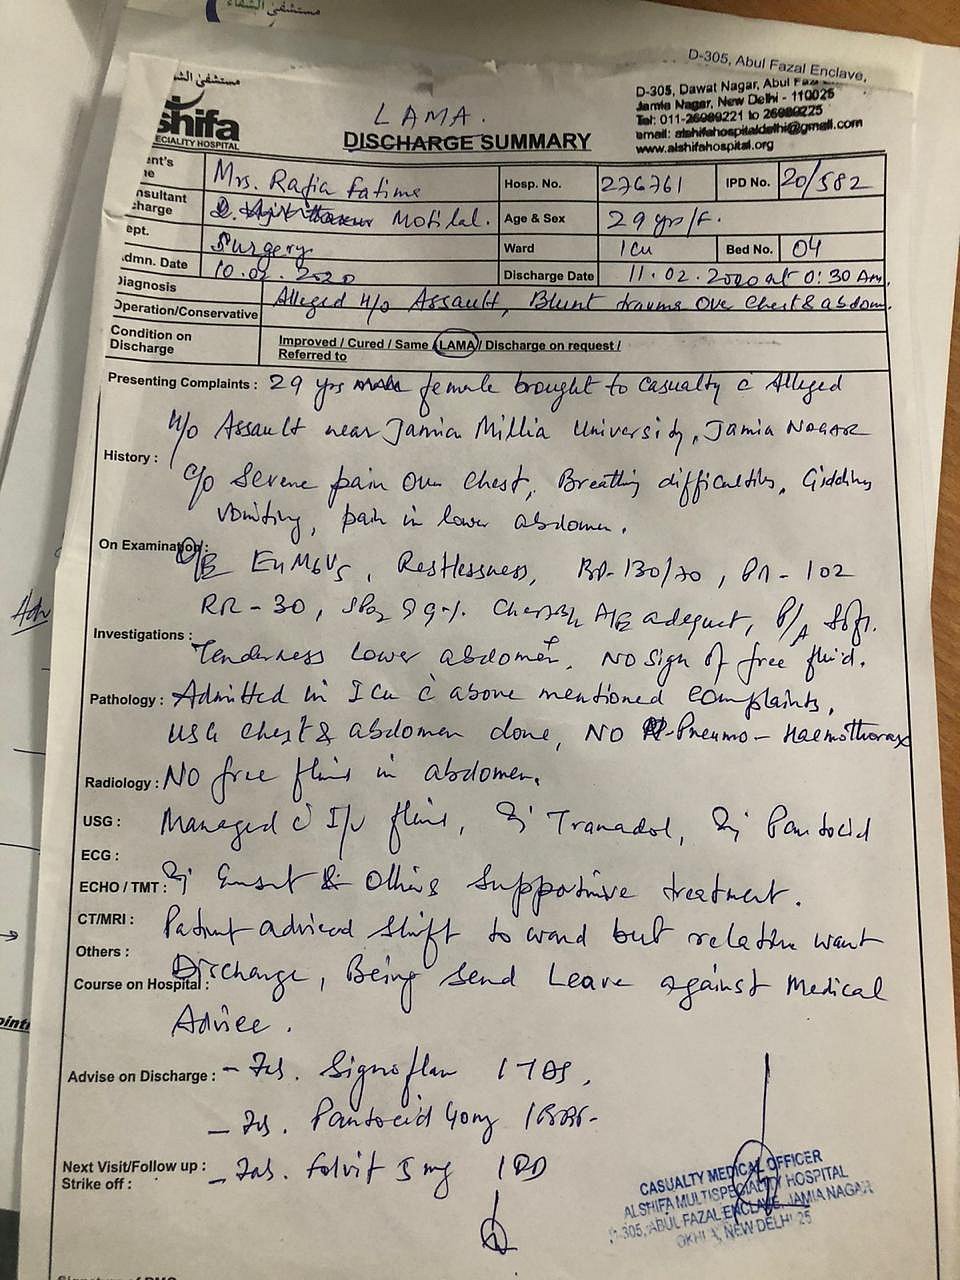 مستشفى الشفاء
D-305, Abul Fazal Enclave,
مستشفى الش
shifa
ECIALITY HOSPITAL
LAMA.
DISCHARGE SUMMARY
D-305, Dawat Nagar, Abul Faz
Jamia Nagar, New Delhi - 110025
Tel: 011-26989221 to 26989225
email: alshifahospitaldelhi@gmail.com
www.alshifahospital.org
ent's
ne Mrs. Rafia Fatima Hosp. No. 276761 IPD No. 20/582
nsultant
charge Motilal. Age & Sex 29 yrs/F.
ept. Surgery Ward ICU Bed No. 04
dmn. Date 10.02.2020 Discharge Date 11.02.2020 at 0:30 Am.
Diagnosis Alleged H/o Assault, Blunt trauma over chest & abdom.
Operation/Conservative
Condition on
Discharge
Improved / Cured / Same / LAMA / Discharge on request /
Referred to
Presenting Complaints : 29 yrs female brought to casualty c̄ Alleged
H/o Assault near Jamia Millia University, Jamia NAGAR
History :
c/o Severe pain over chest, Breathing difficulties, Giddiness
vomiting, pain in lower abdomen.
On Examination :
O/E E4M6V5, Restlessness, BP-130/70, PR-102
RR-30, SPO2 99% Chest B/L A/E adequet, P/A Soft.
Investigations :
Tenderness lower abdomen +. NO sign of free fluid.
Pathology : Admitted in ICU c̄ above mentioned complaints,
USG chest & abdomen done, NO Pneumo-Haemothorax
Radiology : NO free fluid in abdomen.
USG : Managed c̄ I/V fluid, Inj Tramadol, Inj Pantocid
ECG :
ECHO / TMT : Inj Emset & Others supportive treatment.
CT/MRI : Patient adviced shift to ward but relative want
Others :
Discharge, Being send Leave against Medical
Course on Hospital :
Advice.
Advise on Discharge : - Tab. Signoflam 1 TDS,
- Tab. Pantocid 40mg 1 BBF-
Next Visit/Follow up : - Tab. Folvit 5 mg 1 OD
Strike off :
CASUALTY MEDICAL OFFICER
ALSHIFA MULTISPECIALITY HOSPITAL
D-305, ABUL FAZAL ENCLAVE, JAMIA NAGAR
OKHLA, NEW DELHI 25
Adv